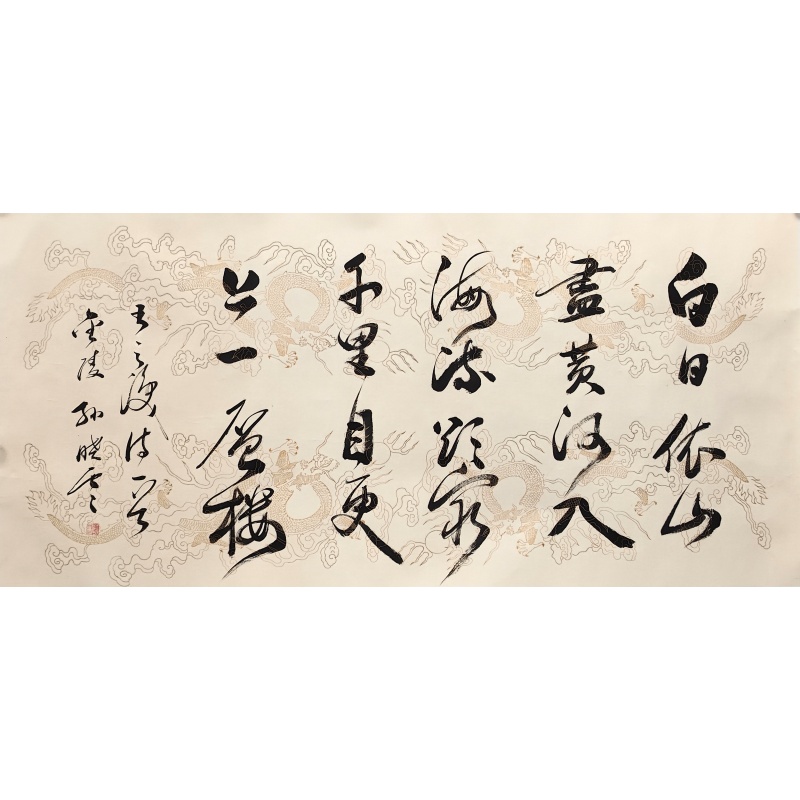 白日依山
盡黄河入
海流欲窮
千里目更
上一層樓
王之渙詩一首
金陵 孫曉雲